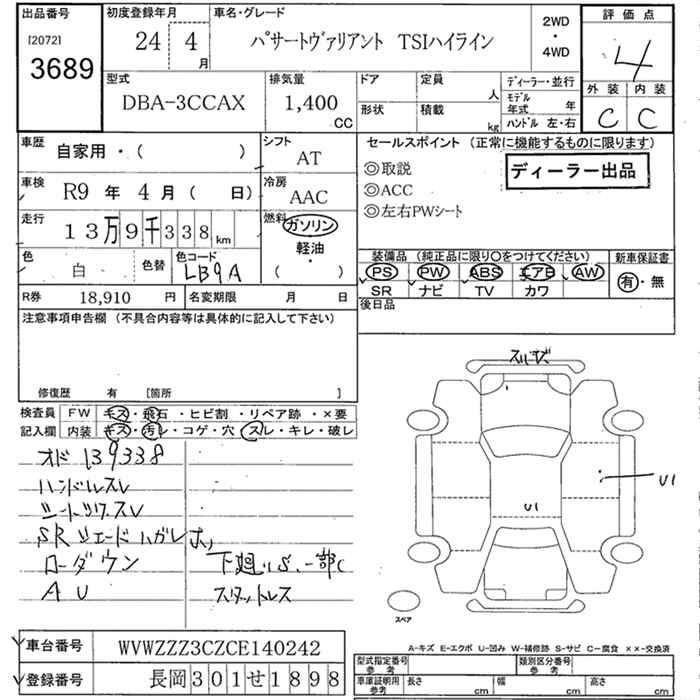 出品番号
[2072]
3689
初度登録年月
24 4 月
車名・グレード
パサートヴァリアント TSIハイライン
2WD
・
4WD
評価点
4
外装 内装
C C
型式
DBA-3CCAX
排気量
1,400 CC
ドア 定員 人
形状 積載 kg
ディーラー・並行
モデル年式 年
ハンドル 左・右
車歴 自家用・( )
シフト AT
車検 R9 年 4 月 ( 日)
冷房 AAC
走行 13万9千338 km
燃料 ガソリン
軽油
・
( )
色 白 色替 色コード LB9A
R券 18,910 円 名変期限 月 日
セールスポイント (正常に機能するものに限ります)
◎取説
◎ACC
◎左右PWシート
ディーラー出品
装備品 (純正品に限り○をつけてください)
PS PW ABS エアB AW
SR ナビ TV カワ
新車保証書
有・無
後日品
注意事項申告欄 (不具合内容等は具体的に記入して下さい)
修復歴 有 [箇所 ]
検査員 FW キズ・飛石・ヒビ割・リペア跡・×要
記入欄 内装 キズ・汚レ・コゲ・穴・スレ・キレ・破レ
オド 139338
ハンドルスレ
シートワレスレ
SRシェードハガレ
ローダウン
AU
下廻りS.一部C
スタットレス
スリキズ
U1
U1
スペア
A-キズ E-エクボ U-凹み W-補修跡 S-サビ C-腐食 ××-交換済
車台番号 WVWZZZ3CZCE140242
登録番号 長岡301せ1898
型式指定番号 参考
類別区分番号 参考
車庫証明用 参考 長さ cm 幅 cm 高さ cm